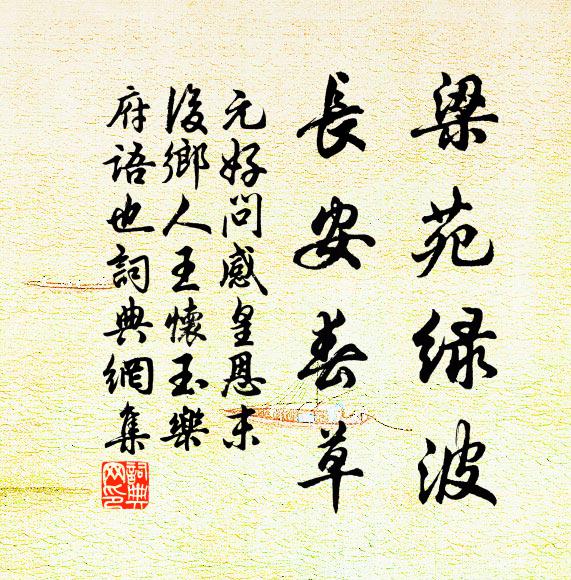 梁苑绿波
長安春草
元好問感皇恩末
後鄉人王懷玉樂
府語也詞典網集
詞典網印